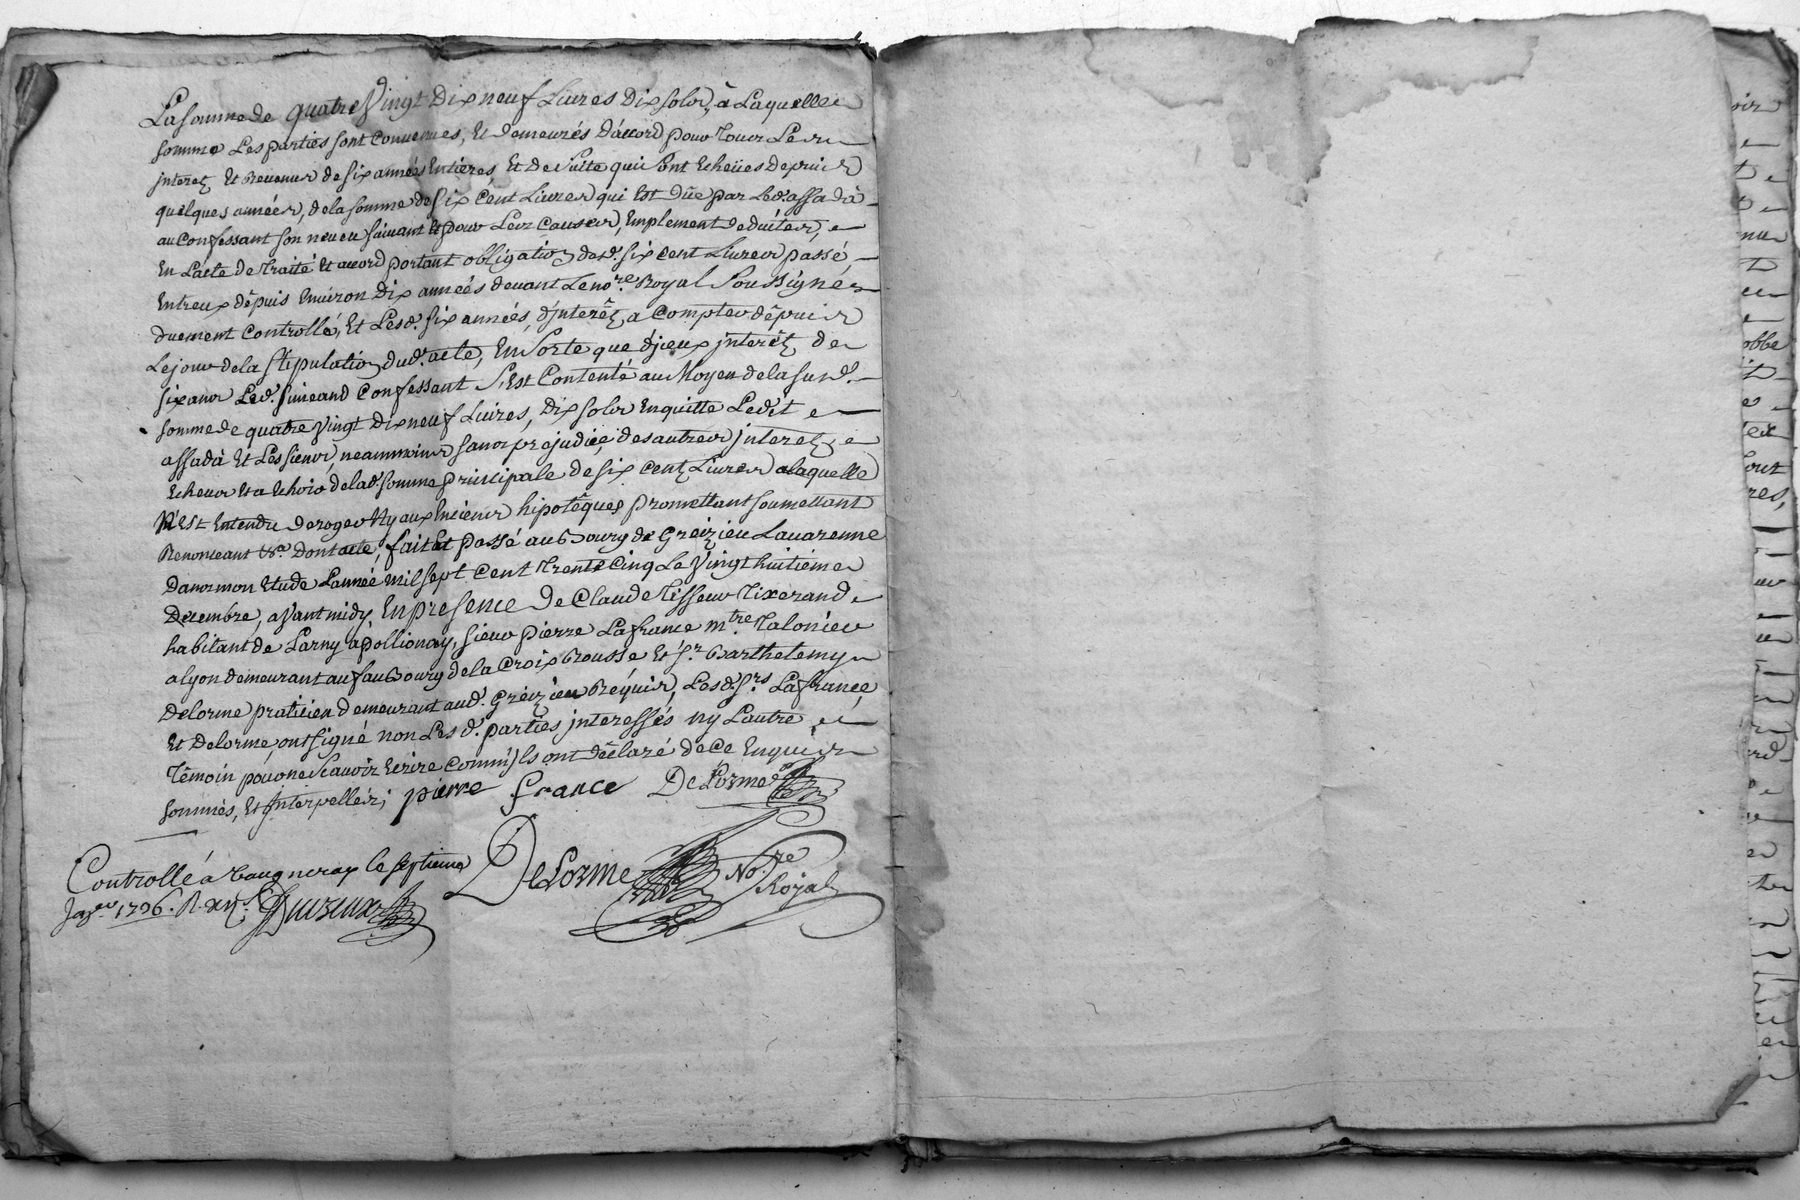 La somme de quatre Vingt Dix neuf Livres Dix solz, à Laquelle
somme Les parties sont convenues, Et demeurés d'accord pour Tous Les
jnterez Et Revenus de six années Entieres, Et de Suite qui sont Echeües depuis
quelques années, de la somme de six Cent Livres qui Est düe par Led. assadà
au Confessant son neveu suivant Et pour Les Causes, Emplement deduites,
En L'acte de traité Et accord portant obligation desd. six cent Livres passé
Entreux depuis Environ Dix années devant Le no.re Royal Soussigné
duement Controllé, Et Lesd. six années d'jnterêz a Compter depuis
Le jour de la Stipulation dud. acte, En Sorte que d'jceux jnterêz de
six ans Led. Simeand Confessant S'Est Contenté au Moyen de la susd.
somme de quatre Vingt Dix neuf Livres, Dix solz En quitte Ledit
assadà Et Les siens, neammoins sans prejudice, des autres jnterez
Echeus Et a Echoir de lad. somme principale de six Centz Livres a laquelle
N'Est Entendu deroger Ny aux Enciens hipotêques promettant soumettant
Renonceant &a. Dont acte, fait Et passé au Bourg de Greizieu Lavarenne
Dans mon Etude L'année mil sept Cent Trente Cinq Le Vingt huitieme
Decembre, avant midy, En presence de Claude Tisseur Tixerand
habitant de Larny a pollionay, sieur pierre Lafrance m.tre Talonier
a lyon demeurant au fauBourg de la Croix Rousse Et s.r Barthelemy
Delorme praticien demeurant aud. Greizieu Requis, Lesd. s.rs Lafrance
Et Delorme, ont signé non Les d. parties jnteressés ny L'autre
Têmoin pour ne Scavoir Ecrire Comm'jls ont déclaré de Ce Enquis
sommés, Et Interpellés;
pierre france DeLorme
Controllé à Vaugneray le septieme
Jan.er 1736. R. xij s.
DeLorme No.re
Royal